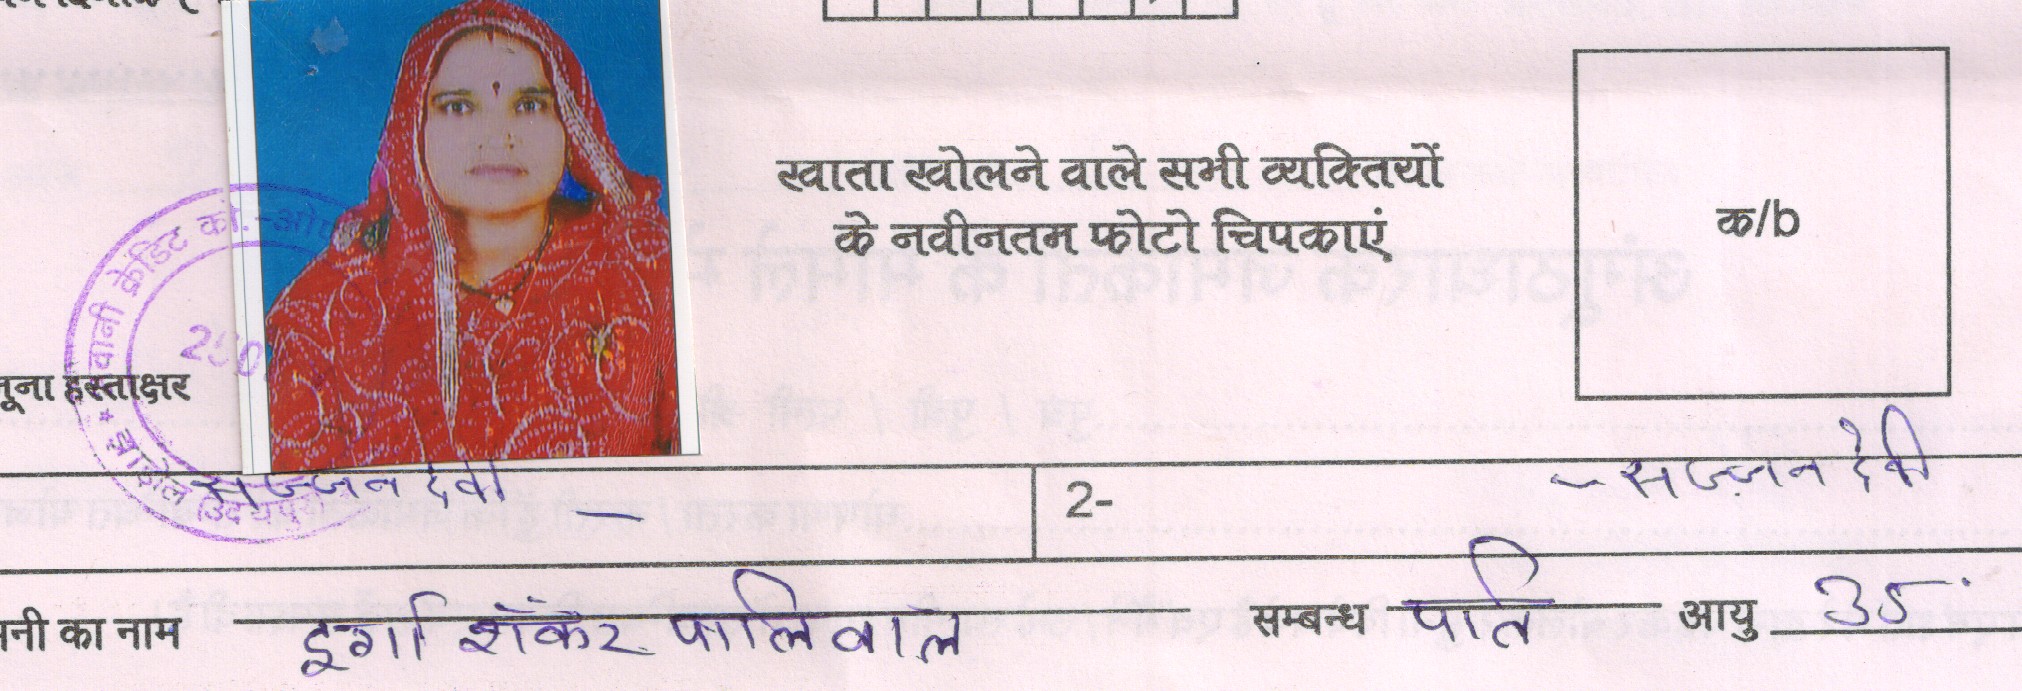 खाता खोलने वाले सभी व्यक्तियों
के नवीनतम फोटो चिपकाएं
क/b
क्रेडिट को.-ओ
हस्ताक्षर
सज्जन देवी
2-
सज्जन देवी
का नाम दुर्गा शंकर पालिवाल सम्बन्ध पति आयु 35